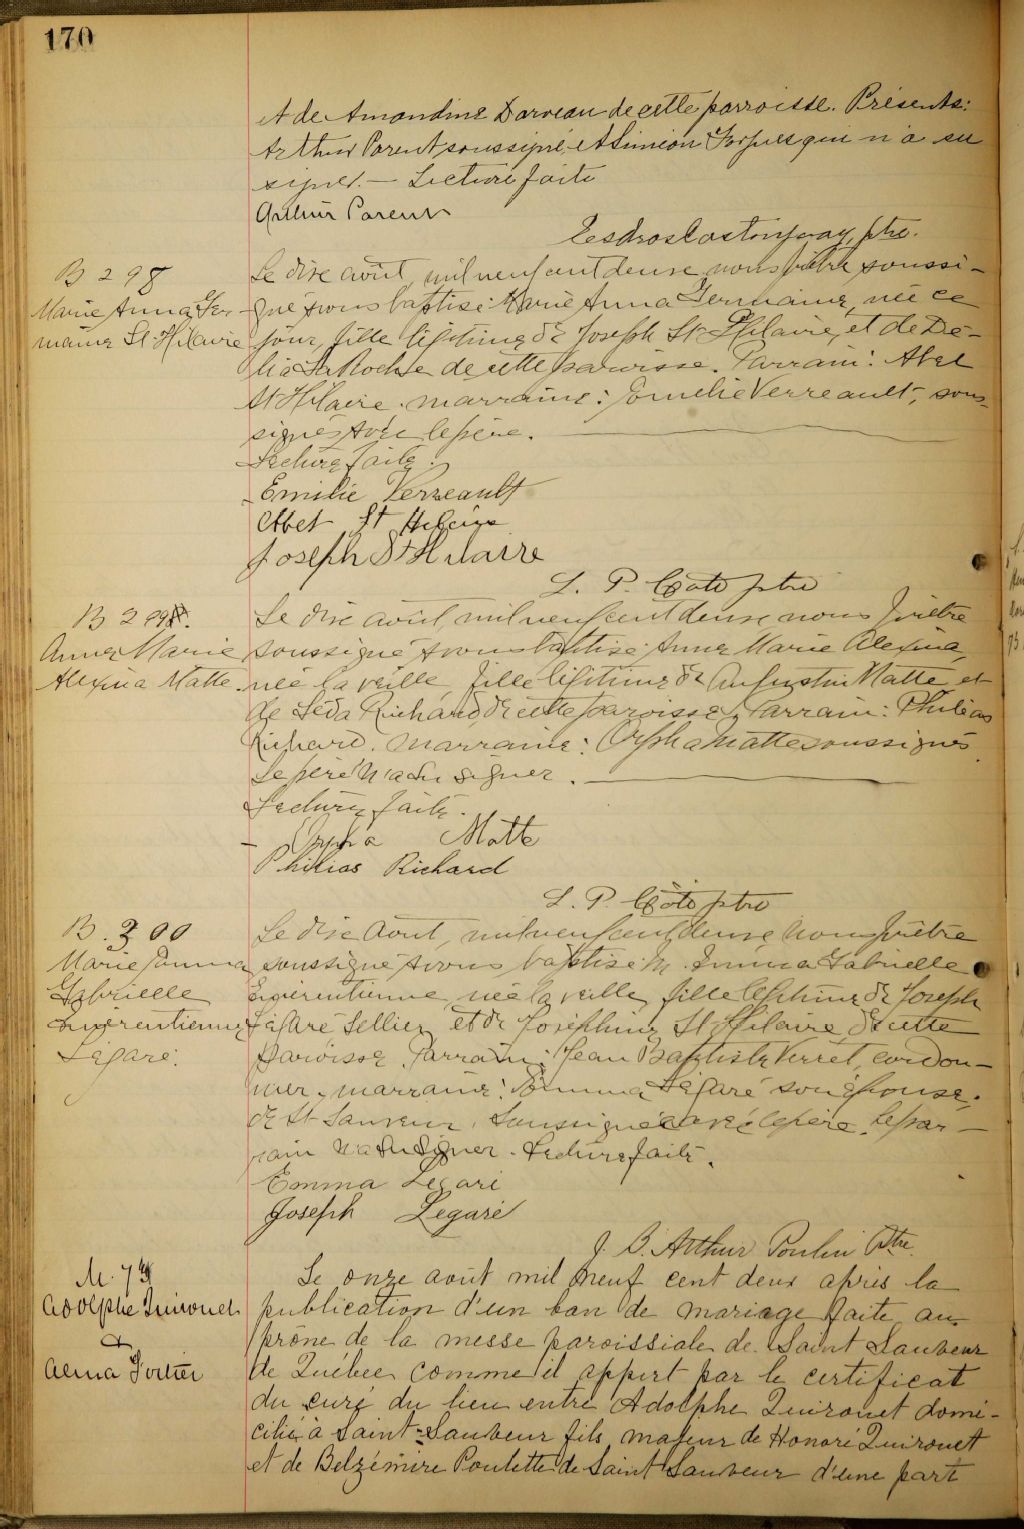 170
et de Amandine Darveau de cette paroisse. Présents:
Arthur Parent soussigné et Siméon qui n'a su
signer. — Lecture faite
Arthur Parent
ptre.
B 298
Marie Anna Ger-
maine St Hilaire
Le dix août, mil neuf cent deux nous prêtre, soussi-
gné avons baptisé Marie Anna Germaine, née ce
jour, fille légitime de Joseph St Hilaire, et de Dé-
lia LaRoche de cette paroisse. Parrain: Abel
St Hilaire. marraine: Emélie Verreault, sous-
signés avec le père.
Lecture faite.
Emilie Verreault
Abel St Hilaire
Joseph St Hilaire
L. P. Côté ptre
B 299
Anna Marie
Alexina Matte.
Le dix août, mil neuf cent deux nous prêtre
soussigné avons baptisé Anna Marie Alexina,
née la veille, fille légitime de Augustin Matte et
de Léda Richard, de cette paroisse. Parrain: Philias
Richard. Marraine: Orpha Matte soussignés
Le père n'a su signer.
Lecture faite.
Orpha Matte
Philias Richard
L. P. Côté ptre
B. 300
Marie Emma
Gabrielle
Emérentienne
Légaré.
Le dix Août, mil neuf cent deux, nous prêtre
soussigné avons baptisé M. Emma Gabrielle
Emérentienne, née la veille, fille légitime de Joseph
Légaré Sellier, et de Joséphine St Hilaire, de cette
paroisse. Parrain: Jean Baptiste Verret, cordon-
nier, marraine: Emma Légaré son épouse,
de St Sauveur, soussignée avec le père. Le par-
rain n'a su signer. Lecture faite.
Emma Légaré
Joseph Legaré
J. B. Arthur Poulin Ptre.
M. 79
Adolphe Quirouet
&
Alma Fortier
Le onze août mil neuf cent deux après la
publication d'un ban de mariage faite au
prône de la messe paroissiale de Saint Sauveur
de Québec comme il appert par le certificat
du curé du lieu entre Adolphe Quirouet domi-
cilié à Saint-Sauveur fils majeur de Honoré Quirouet
et de Belzémire Poulette de Saint Sauveur d'une part